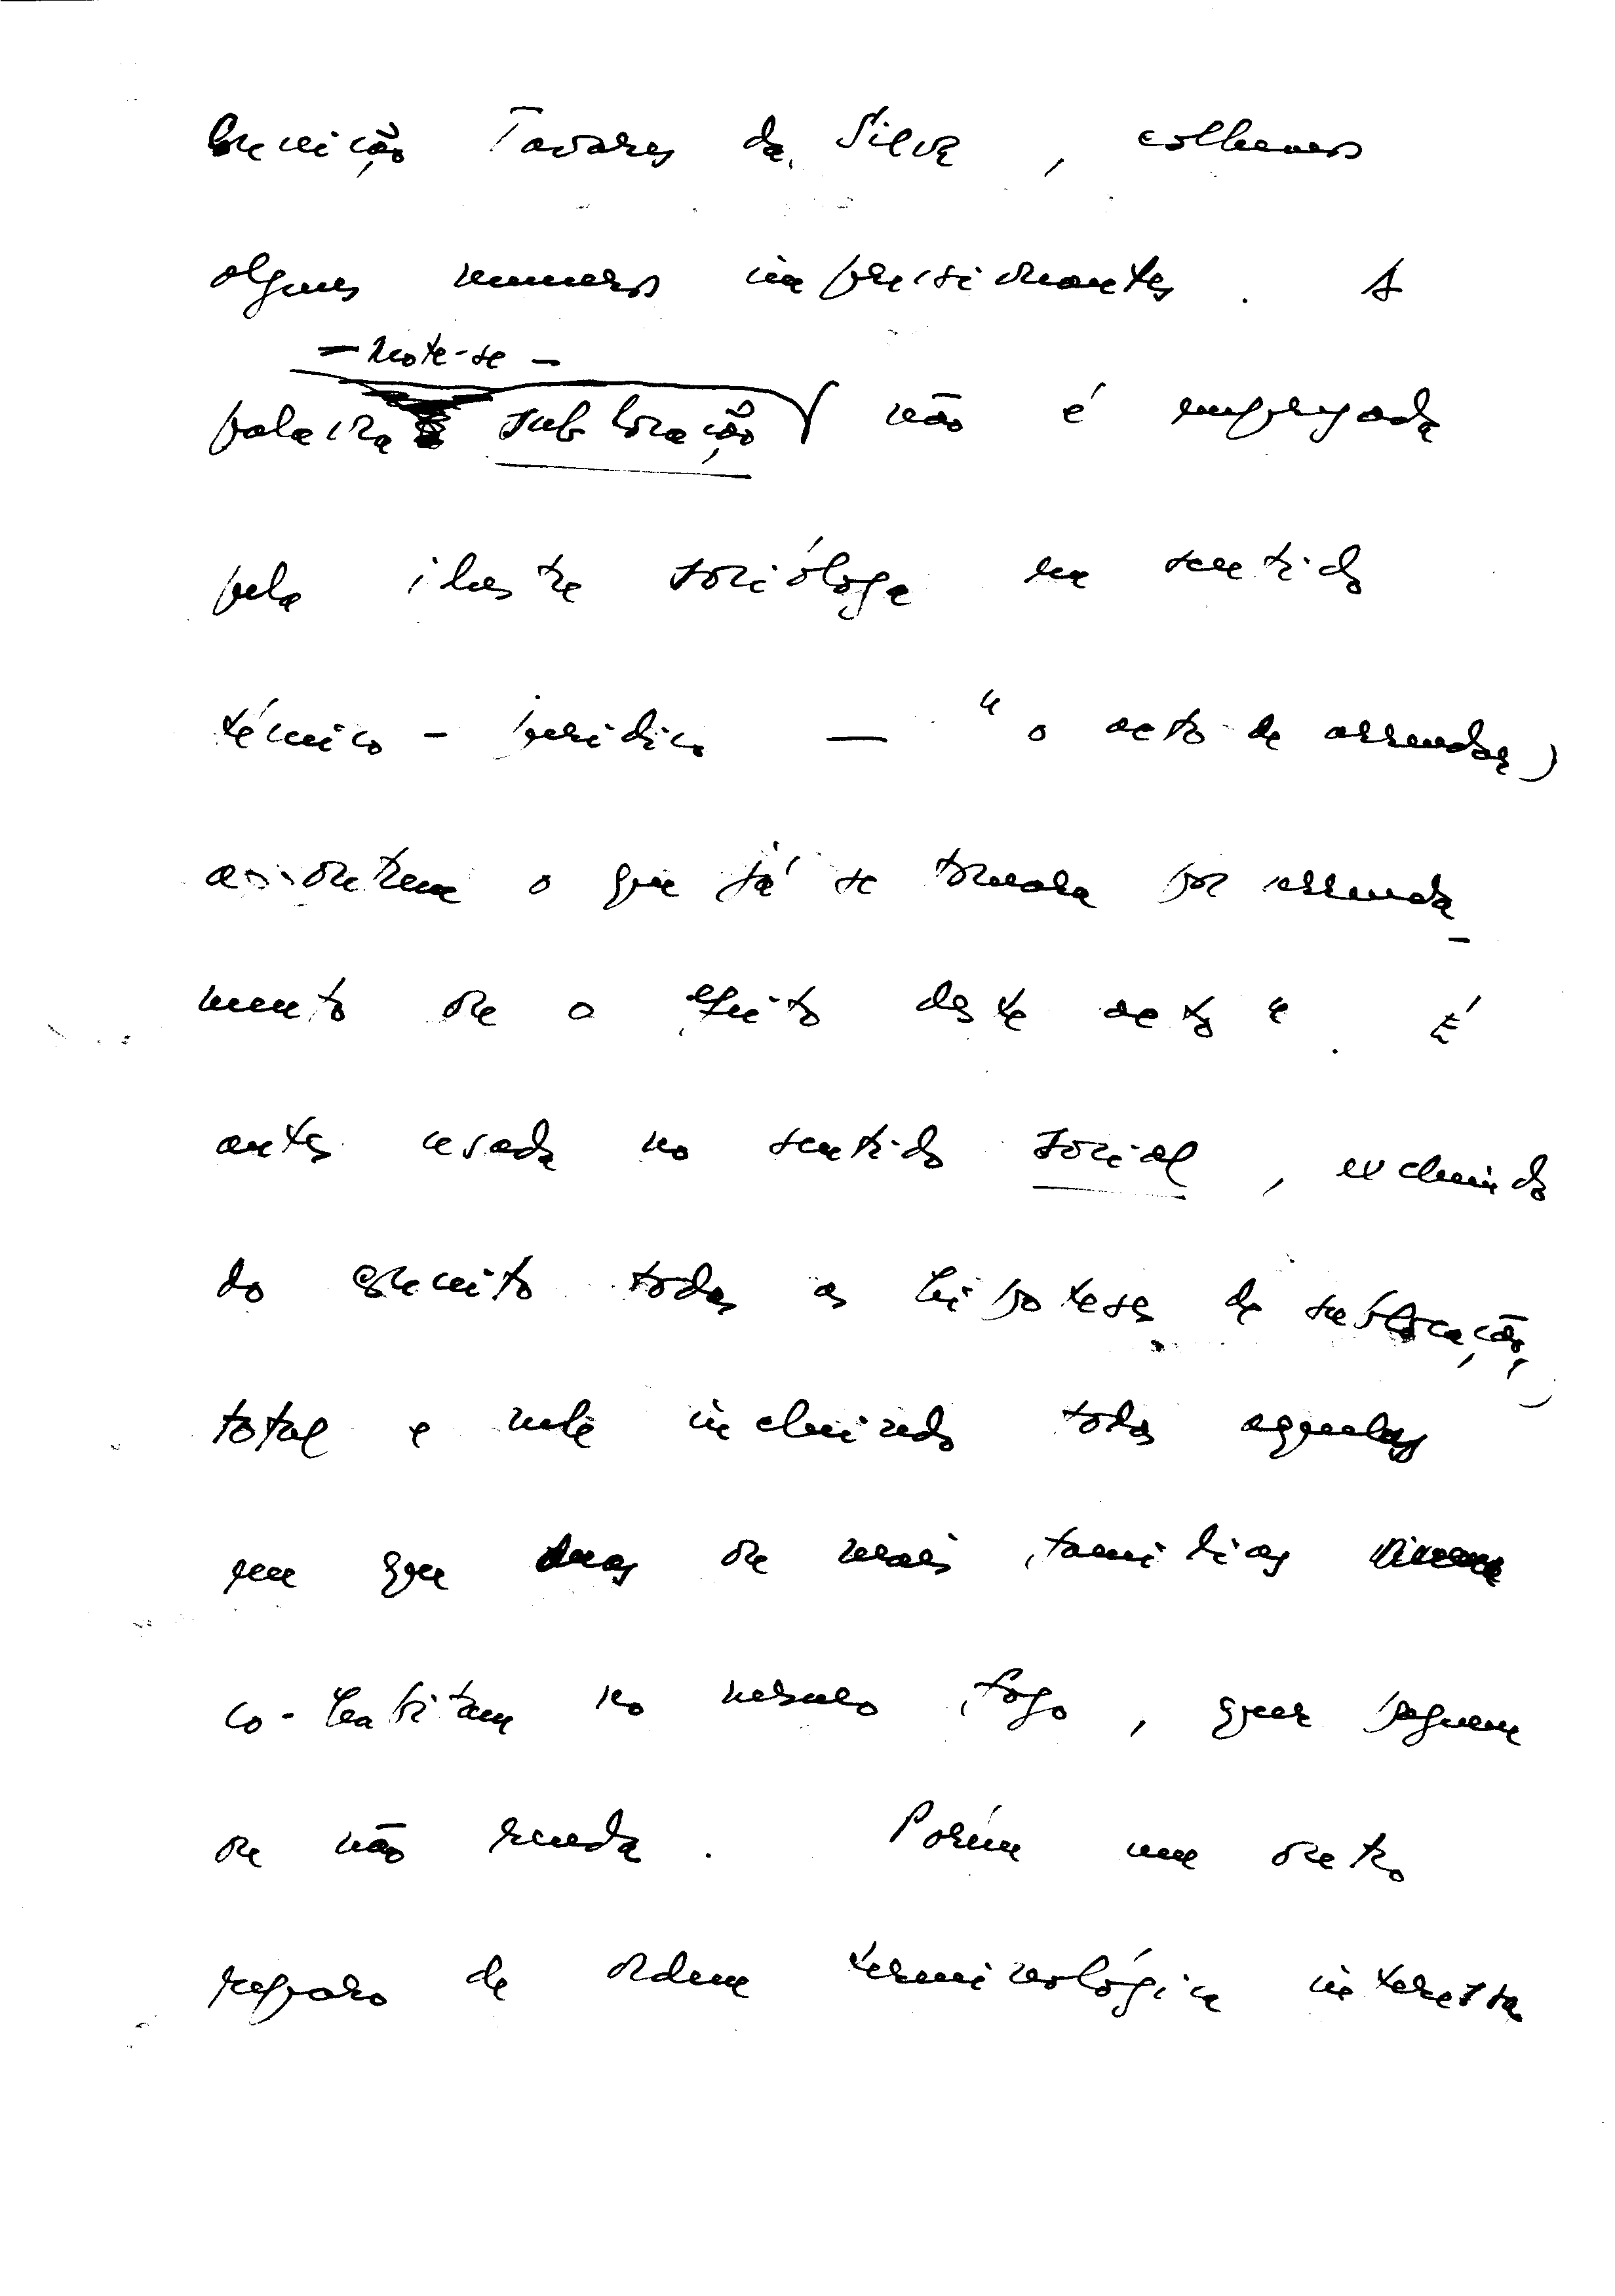 Conceição Tavares da Silva, colhemos
alguns numeros impressionantes. A
— note-se —
palavra sublocação não é empregada
pela ilustre socióloga em sentido
técnico-juridico — "o acto de arrendar
a outrem o que já se tomara por arrenda-
mento ou o efeito deste acto". É
antes usada no sentido social, excluindo
do conceito todas as hipoteses de sublocação
total e nele incluindo todas aquelas
em que duas ou mais familias
co-habitam no mesmo fogo, quer paguem
ou não renda. Porém um outro
reparo de ordem terminológica interessa